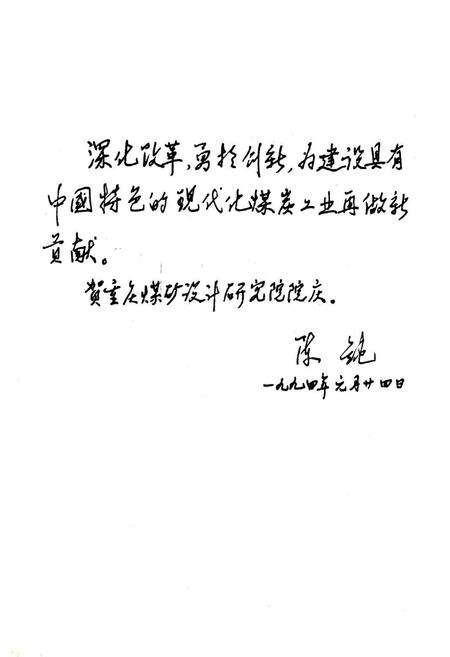 深化改革,勇于创新,为建设具有
中國特色的现代化煤炭工业再做新
贡献。
贺重庆煤矿设计研究院院庆。
陈 钝
一九九四年元月廿四日